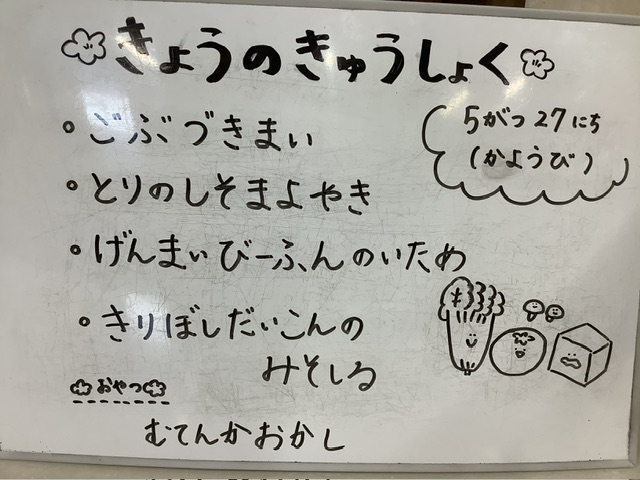 きょうのきゅうしょく
5がつ27にち
(かようび)
・ごぶづきまい
・とりのしそまよやき
・げんまいびーふんのいため
・きりぼしだいこんの
みそしる
おやつ
むてんかおかし